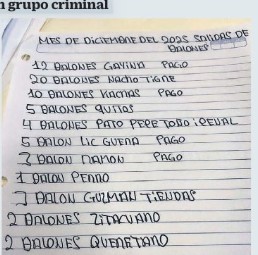 n grupo criminal
MES DE DICIEMBRE DEL 2025 SALIDAS DE
BALONES
12 BALONES GAVINA PAGO
20 BALONES NACHO TIGRE
10 BALONES KACHAS PAGO
5 BALONES QUITOS
4 BALONES PATO PEPE TODO IREVAL
5 BALON LIC GUERA PAGO
3 BALON RAMON PAGO
1 BALON PERRO
3 BALON GUZMAN TIENDAS
2 BALONES ZITACUARO
2 BALONES QUERETANO